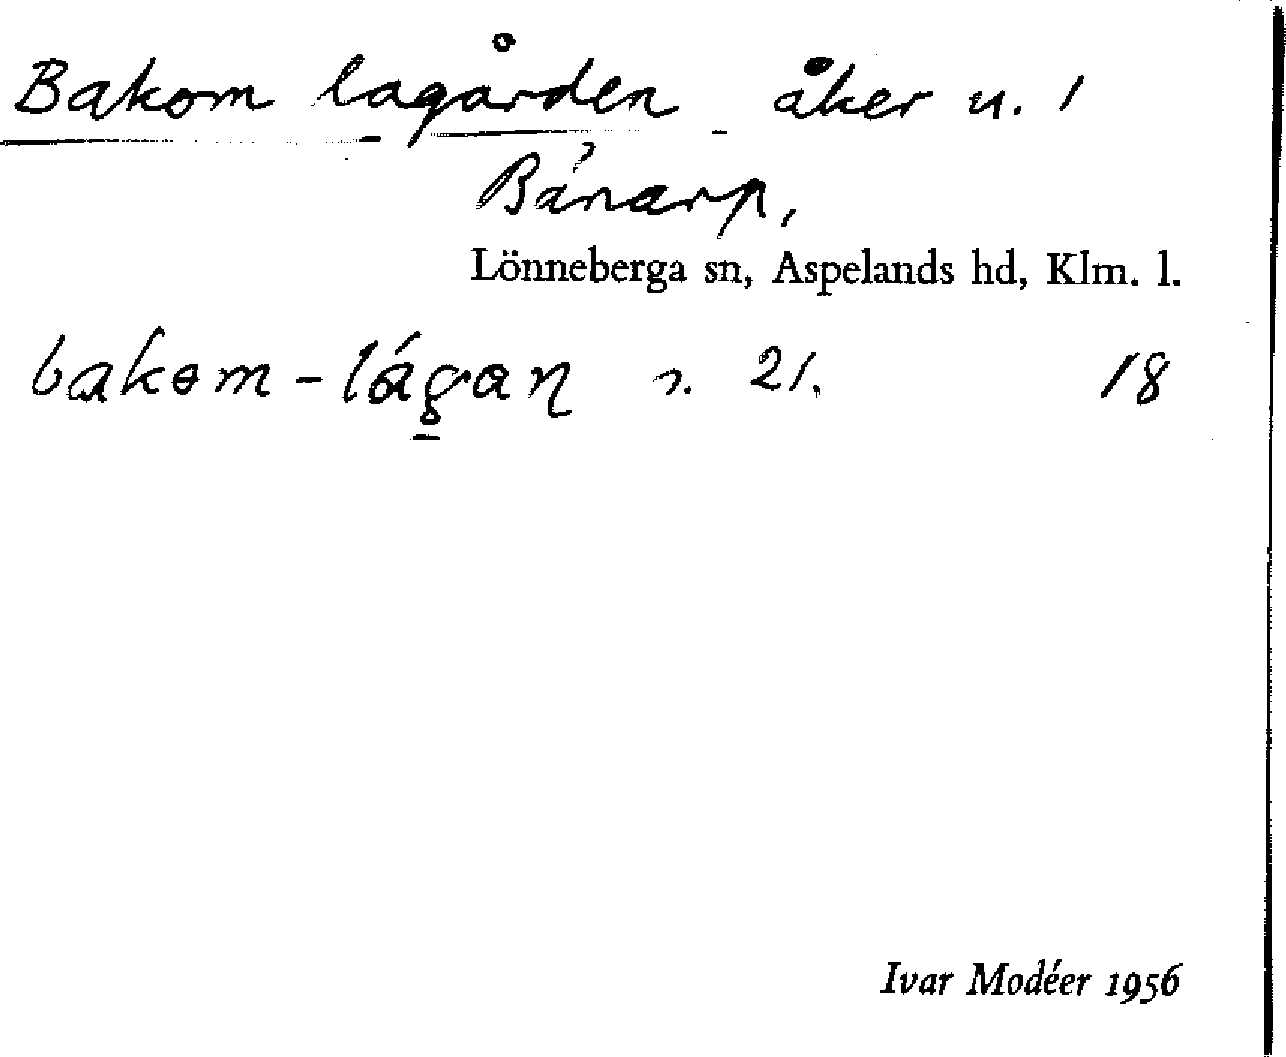 Bakom lagården åker u. 1
Bånarp,
Lönneberga sn, Aspelands hd, Klm. l.
bakɵm-lágaɳ n. 21. 18
Ivar Modéer 1956